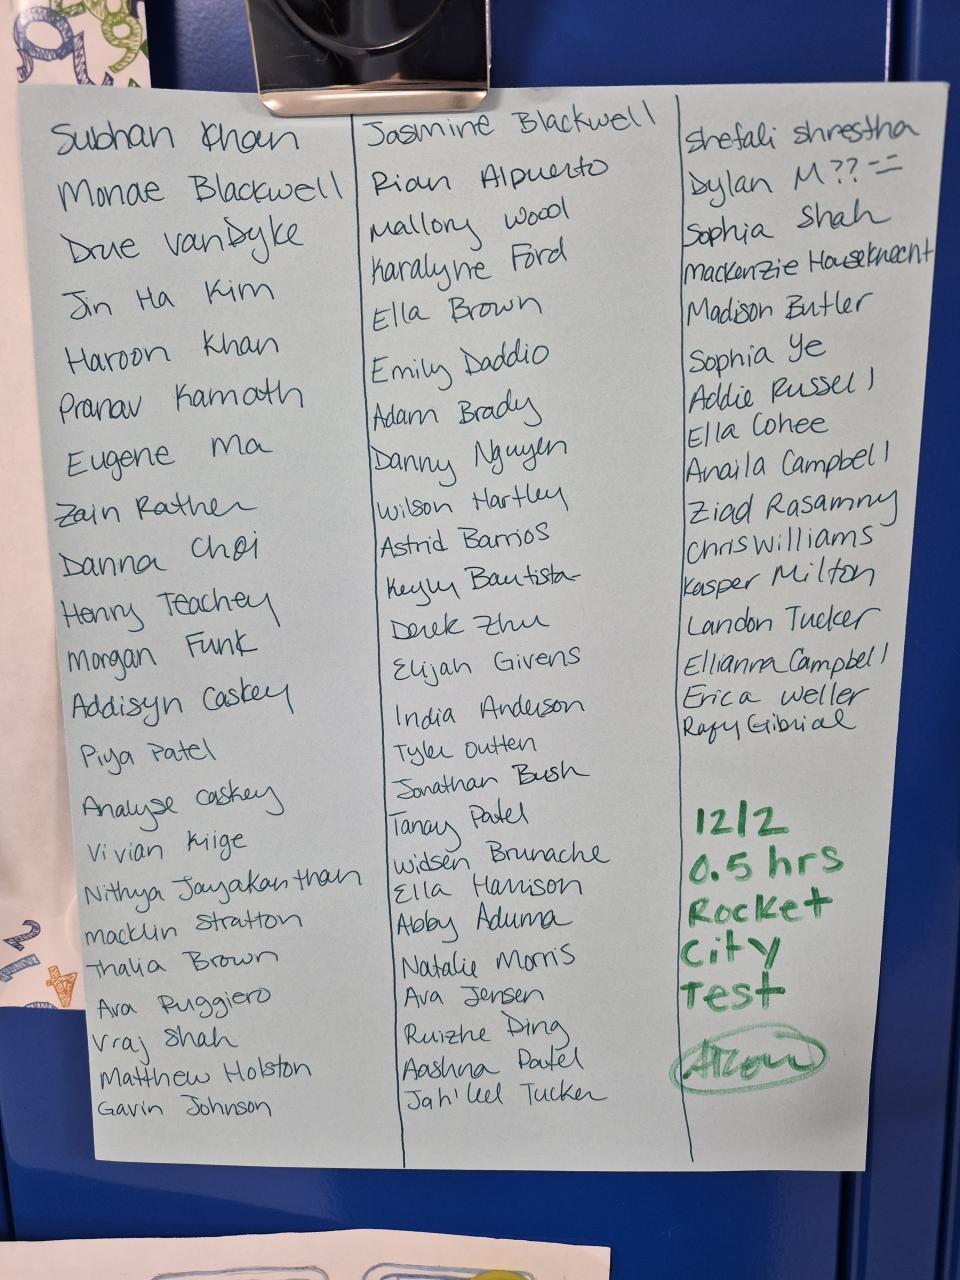 Subhan Khan
Monae Blackwell
Drue VanDyke
Jin Ha Kim
Haroon Khan
Pranav Kamath
Eugene Ma
Zain Rather
Danna Choi
Henry Teachey
Morgan Funk
Addisyn Caskey
Piya Patel
Analyse Caskey
Vivian Kiige
Nithya Jayakanthan
Macklin Stratton
Thalia Brown
Ava Ruggiero
Vraj Shah
Matthew Holston
Gavin Johnson
Jasmine Blackwell
Rian Alpuerto
Mallory Wood
Karalyne Ford
Ella Brown
Emily Daddio
Adam Brady
Danny Nguyen
Wilson Hartley
Astrid Barrios
Keyly Bautista
Derek Zhu
Elijah Givens
India Anderson
Tyler Outten
Jonathan Bush
Tanay Patel
Widsen Brunache
Ella Harrison
Abby Aduma
Natalie Morris
Ava Jensen
Ruizhe Ding
Aashna Patel
Jah'kel Tucker
Shefali Shrestha
Dylan M??==
Sophia Shah
Mackenzie Houseknecht
Madison Butler
Sophia Ye
Addie Russell
Ella Cohee
Anaila Campbell
Ziad Rasamny
Chris Williams
Kasper Milton
Landon Tucker
Ellianna Campbell
Erica Weller
Rafy Gibrial
12/2
0.5 hrs
Rocket
City
Test